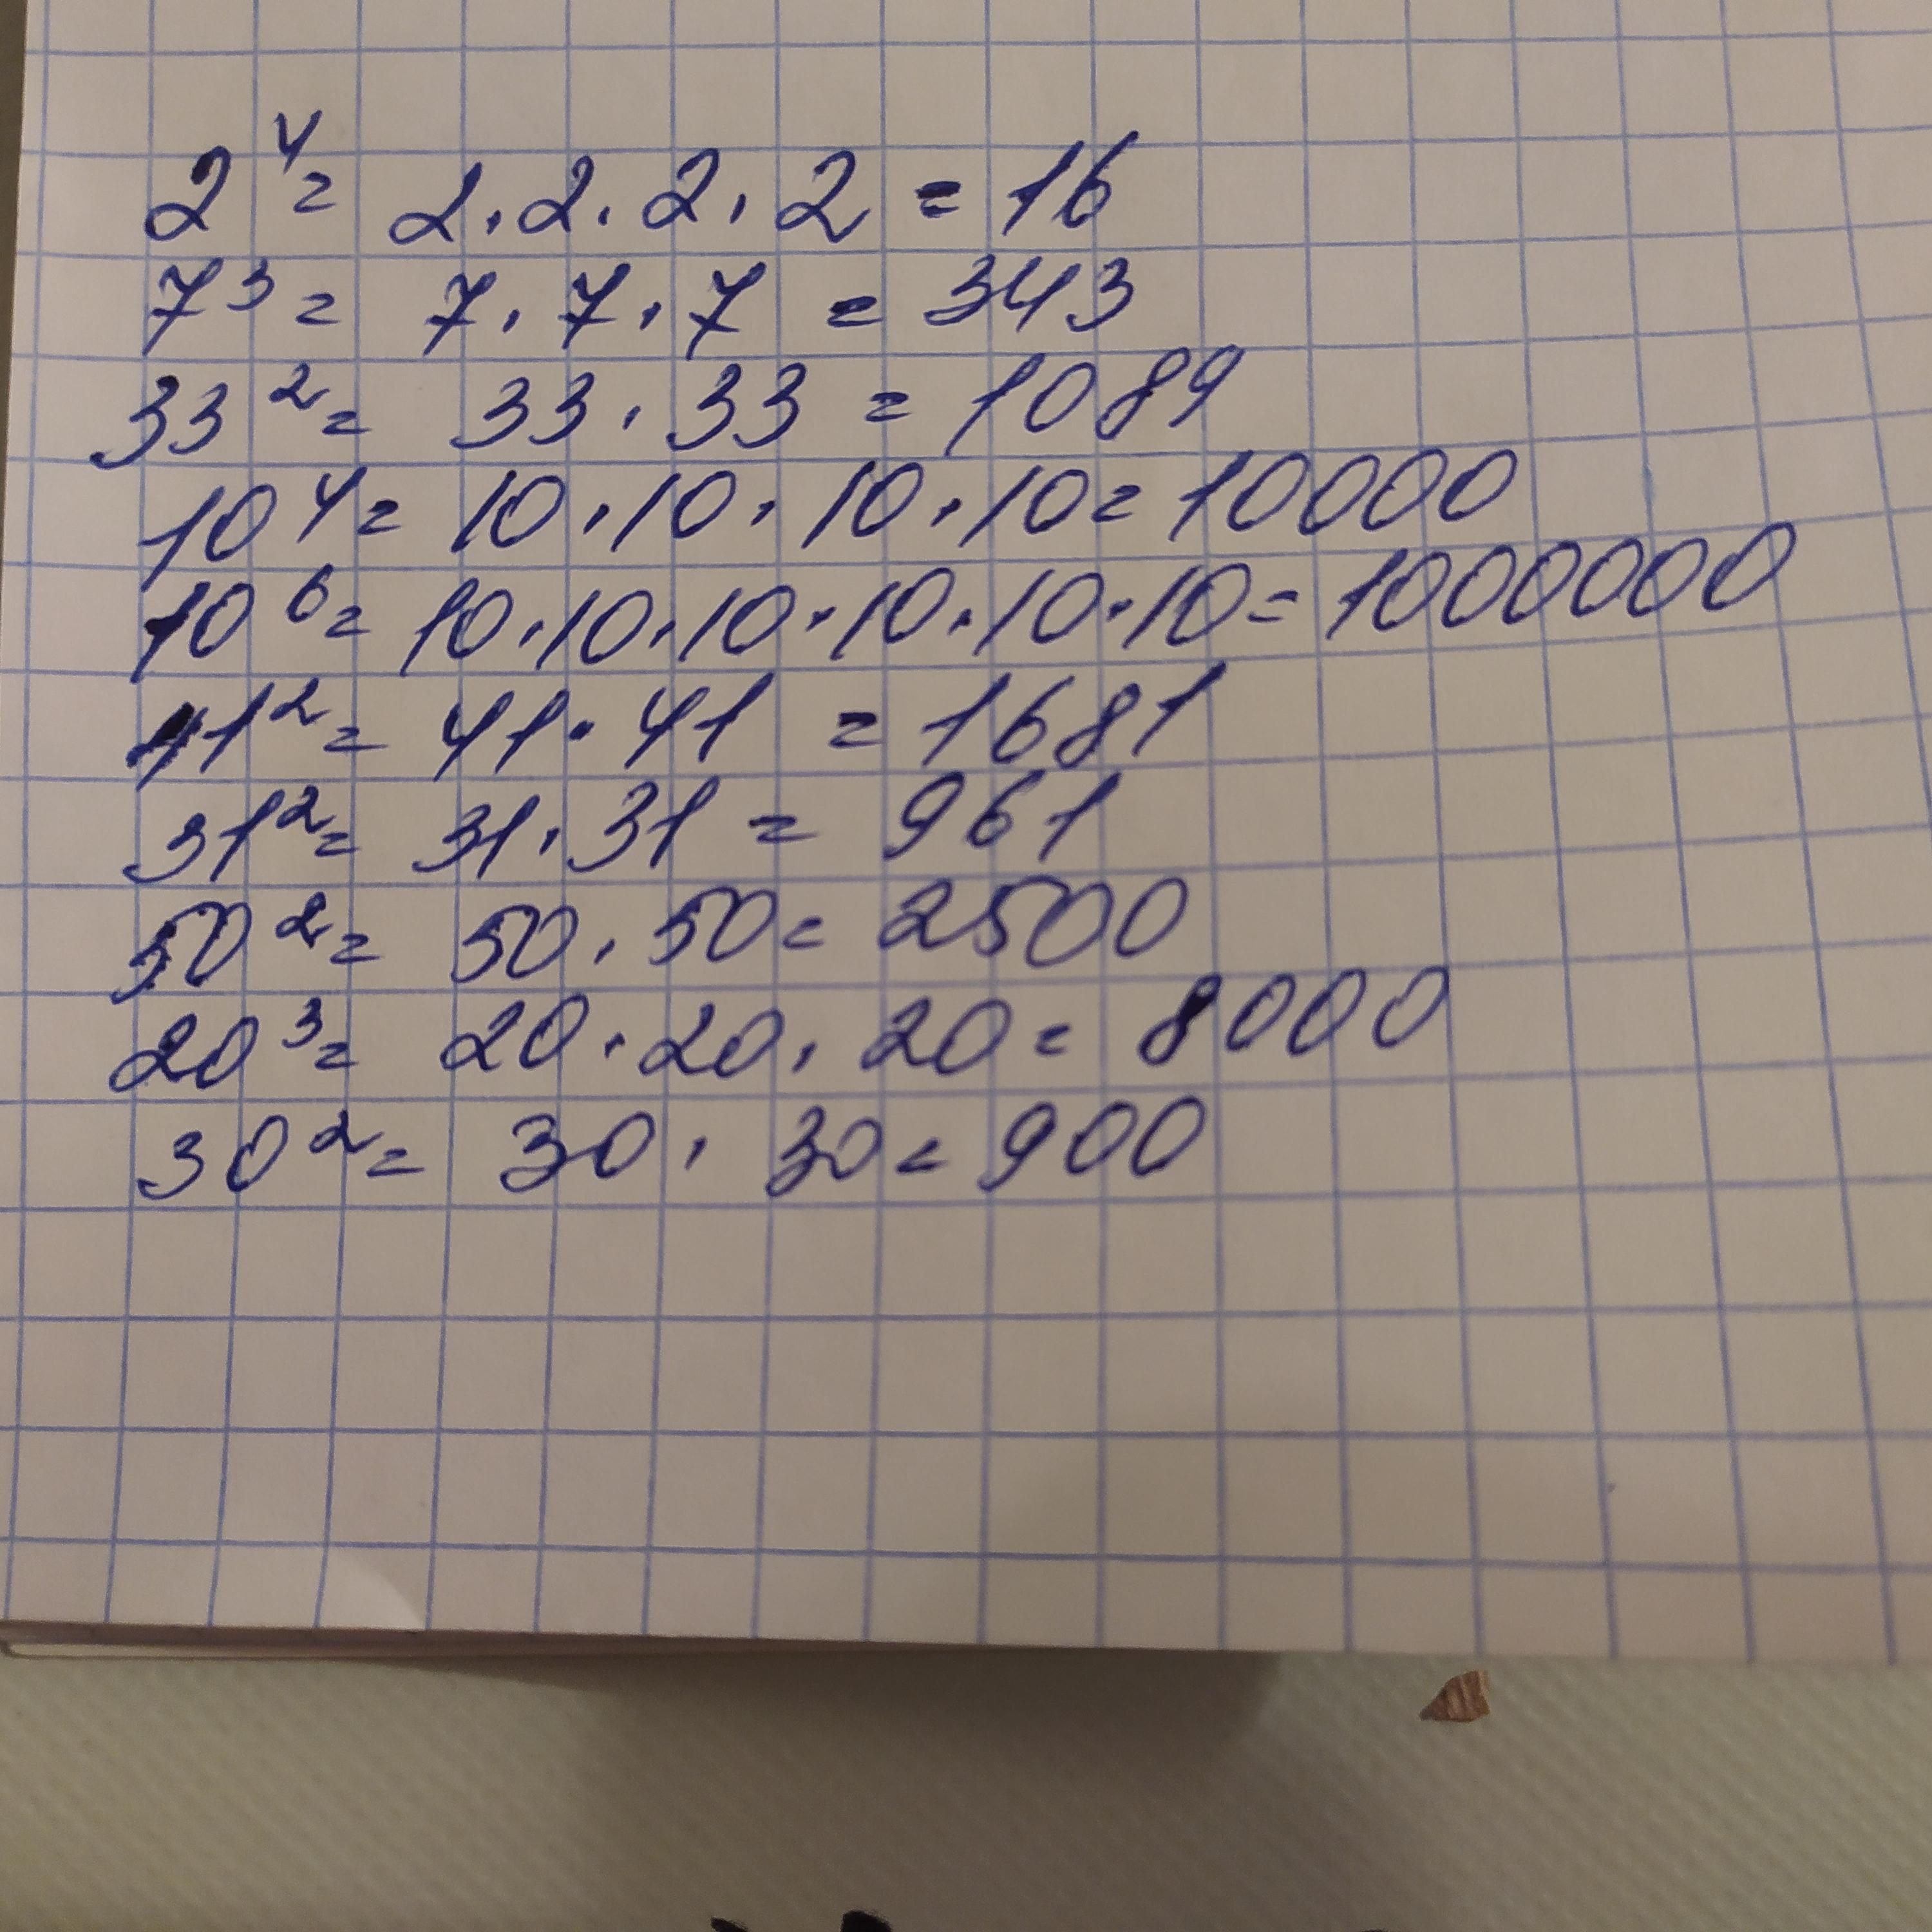 2⁴ = 2 · 2 · 2 · 2 = 16
7³ = 7 · 7 · 7 = 343
33² = 33 · 33 = 1089
10⁴ = 10 · 10 · 10 · 10 = 10000
10⁶ = 10 · 10 · 10 · 10 · 10 · 10 = 1000000
41² = 41 · 41 = 1681
31² = 31 · 31 = 961
50² = 50 · 50 = 2500
20³ = 20 · 20 · 20 = 8000
30² = 30 · 30 = 900